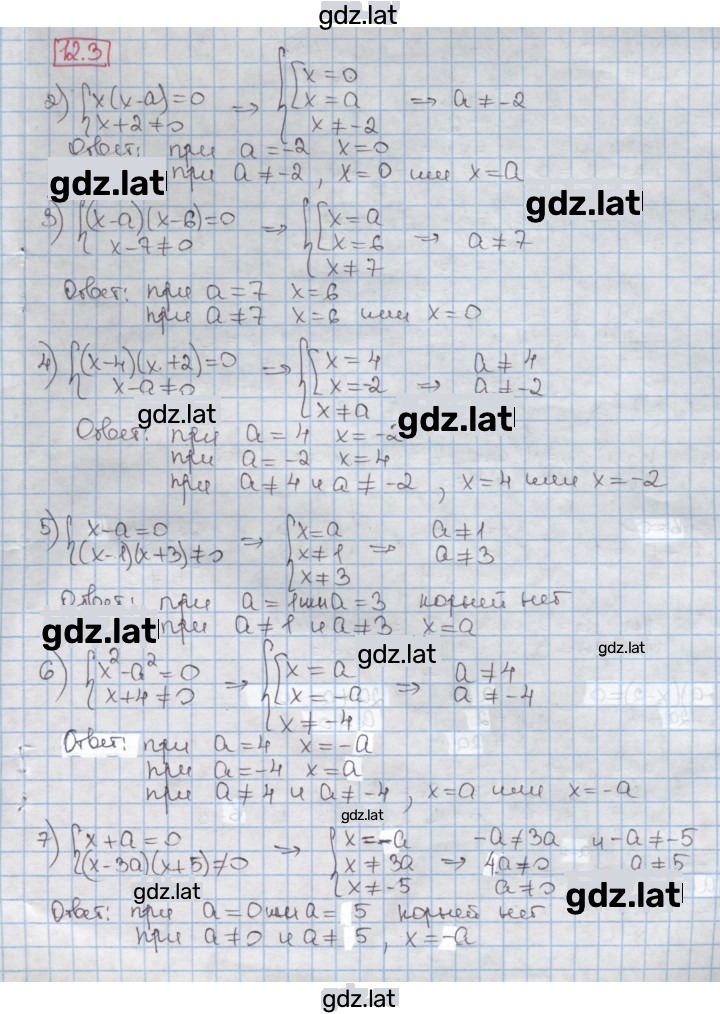 gdz.lat
12.3
2) { x(x-a)=0 ⇒ { [ x=0
{ x+2≠0 [ x=a ⇒ a≠-2
x≠-2
Ответ: при a=-2 x=0
при a≠-2, x=0 или x=a
gdz.lat
gdz.lat
3) { (x-a)(x-6)=0 ⇒ { [ x=a
{ x-7≠0 [ x=6 ⇒ a≠7
x≠7
Ответ: при a=7 x=6
при a≠7 x=6 или x=0
4) { (x-4)(x+2)=0 ⇒ { [ x=4 a≠4
{ x-a≠0 [ x=-2 ⇒ a≠-2
x≠a
gdz.lat
gdz.lat
Ответ: при a=4 x=-2
при a=-2 x=4
при a≠4 и a≠-2, x=4 или x=-2
5) { x-a=0 ⇒ { x=a a≠1
{ (x-1)(x+3)≠0 { x≠1 ⇒ a≠3
{ x≠3
Ответ: при a=1 или a=3 корней нет
gdz.lat при a≠1 и a≠3 x=a
gdz.lat
gdz.lat
6) { x²-a²=0 ⇒ { [ x=a a≠4
{ x+4≠0 [ x=-a ⇒ a≠-4
x≠-4
Ответ: при a=4 x=-a
при a=-4 x=a
при a≠4 и a≠-4, x=a или x=-a
gdz.lat
7) { x+a=0 ⇒ { x=-a -a≠3a и -a≠-5
{ (x-3a)(x+5)≠0 { x≠3a ⇒ 4a≠0 a≠5
{ x≠-5 a≠0
gdz.lat
gdz.lat
Ответ: при a=0 или a=5 корней нет
при a≠0 и a≠5, x=-a
gdz.lat